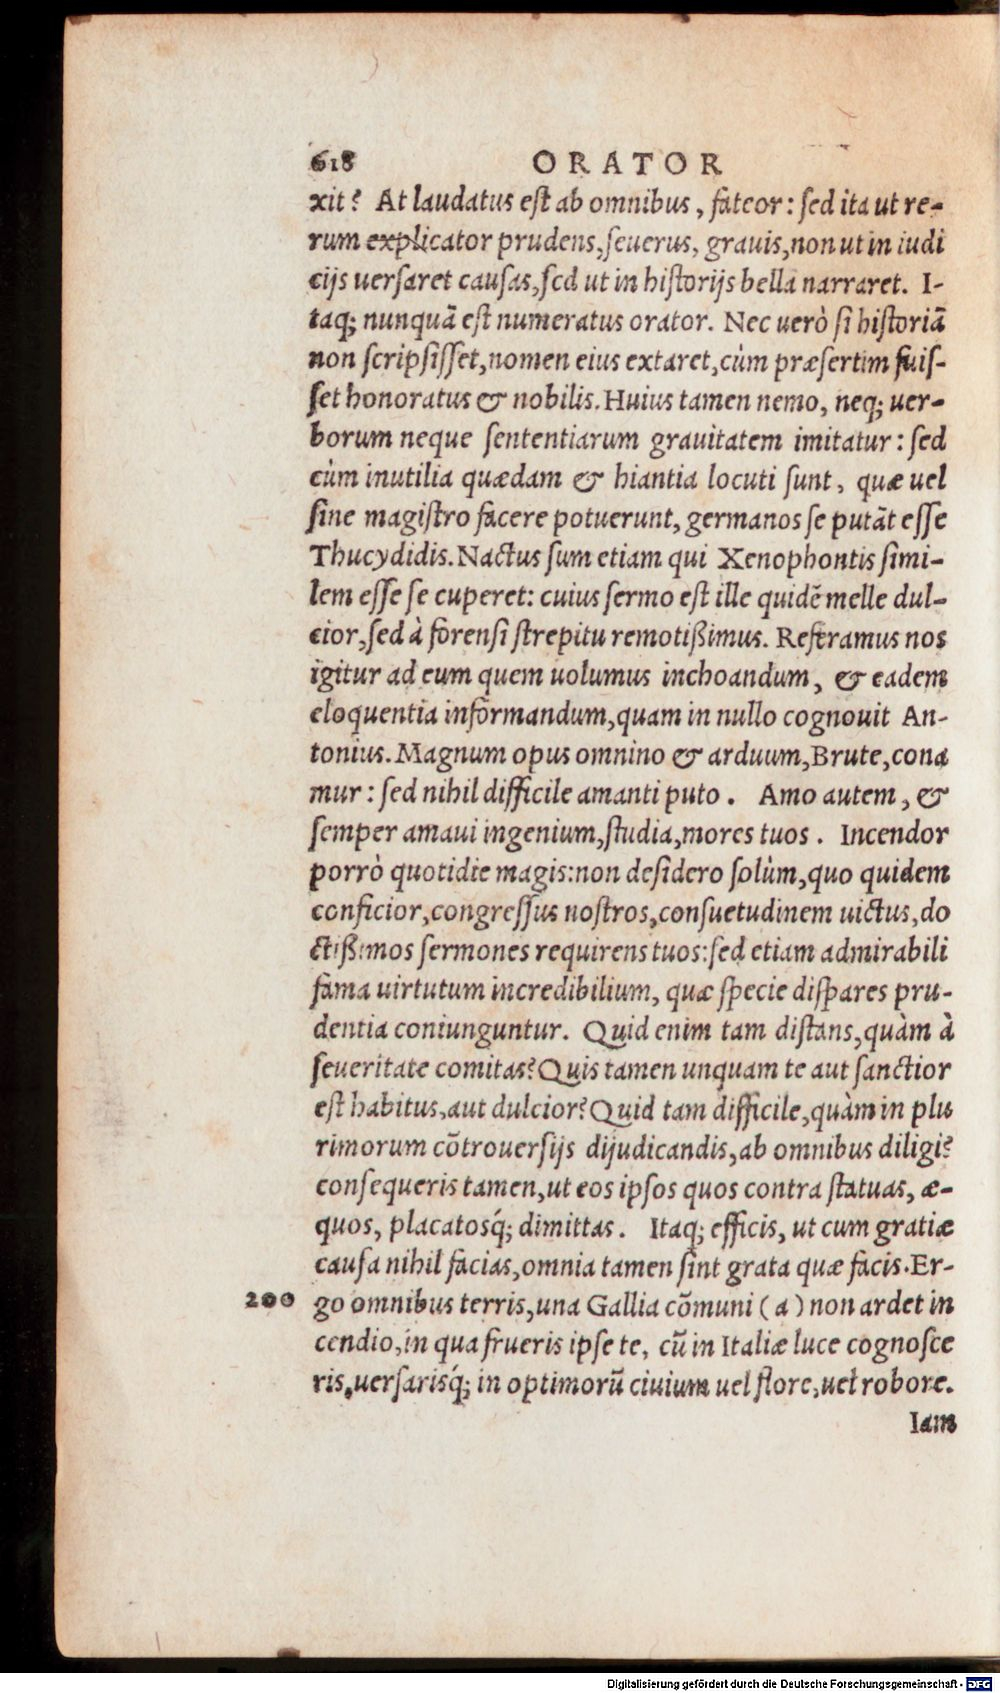 618 ORATOR
xit? At laudatus est ab omnibus, fateor: sed ita ut re-
rum explicator prudens, seuerus, grauis, non ut in iudi
cijs uersaret causas, sed ut in historijs bella narraret. I-
taq; nunquã est numeratus orator. Nec uerò si historiã
non scripsisset, nomen eius extaret, cùm præsertim fuis-
set honoratus & nobilis. Huius tamen nemo, neq; uer-
borum neque sententiarum grauitatem imitatur: sed
cùm inutilia quædam & hiantia locuti sunt, quæ uel
sine magistro facere potuerunt, germanos se putãt esse
Thucydidis. Nactus sum etiam qui Xenophontis simi-
lem esse se cuperet: cuius sermo est ille quidẽ melle dul-
cior, sed à forensi strepitu remotißimus. Referamus nos
igitur ad eum quem uolumus inchoandum, & eadem
eloquentia informandum, quam in nullo cognouit An-
tonius. Magnum opus omnino & arduum, Brute, cona
mur: sed nihil difficile amanti puto. Amo autem, &
semper amaui ingenium, studia, mores tuos. Incendor
porrò quotidie magis: non desidero solùm, quo quidem
conficior, congressus nostros, consuetudinem uictus, do
ctißimos sermones requirens tuos: sed etiam admirabili
fama uirtutum incredibilium, quæ specie dispares pru-
dentia coniunguntur. Quid enim tam distans, quàm à
seueritate comitas? Quis tamen unquam te aut sanctior
est habitus, aut dulcior? Quid tam difficile, quàm in plu
rimorum cõtrouersijs dijudicandis, ab omnibus diligi?
consequeris tamen, ut eos ipsos quos contra statuas, æ-
quos, placatosq́; dimittas. Itaq; efficis, ut cum gratiæ
causa nihil facias, omnia tamen sint grata quæ facis. Er-
200 go omnibus terris, una Gallia cõmuni (a) non ardet in
cendio, in qua frueris ipse te, cũ in Italiæ luce cognosce
ris, uersarisq́; in optimorũ ciuium uel flore, uel robore.
Iam
Digitalisierung gefördert durch die Deutsche Forschungsgemeinschaft - DFG